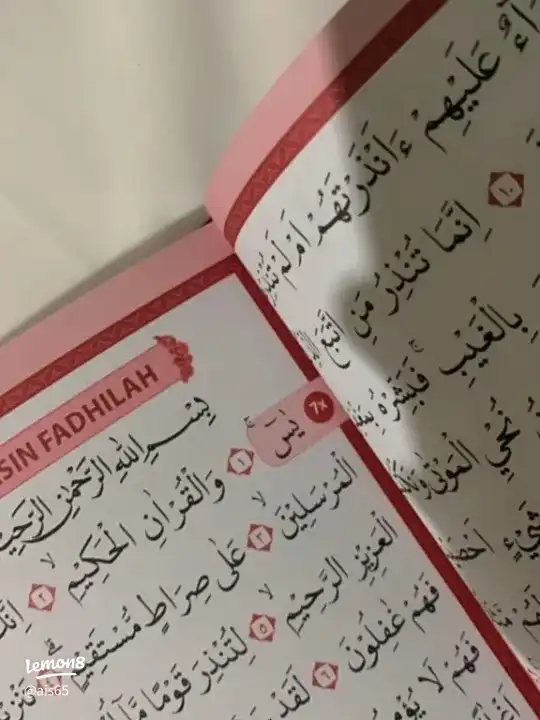 SIN FADHILAH
بِسْمِ اللهِ الرَّحْمٰنِ الرَّحِيْمِ
7x
يٰسٓ ۚ ١ وَالْقُرْاٰنِ الْحَكِيْمِ ۙ ٢ اِنَّكَ
الْمُرْسَلِيْنَ ۙ ٣ عَلٰى صِرَاطٍ مُّسْتَقِيْمٍ
الْعَزِيْزِ الرَّحِيْمِ ۙ ٥ لِتُنْذِرَ قَوْمًا مَّآ
فَهُمْ غٰفِلُوْنَ ٦ لَقَدْ
فَهُمْ لَا
عَلَيْهِمْ ءَاَنْذَرْتَهُمْ اَمْ لَمْ
١٠ اِنَّمَا تُنْذِرُ مَنِ اتَّبَعَ
بِالْغَيْبِ ۚ فَبَشِّرْهُ
نُحْيِ الْمَوْتٰى
lemon8
@ais65